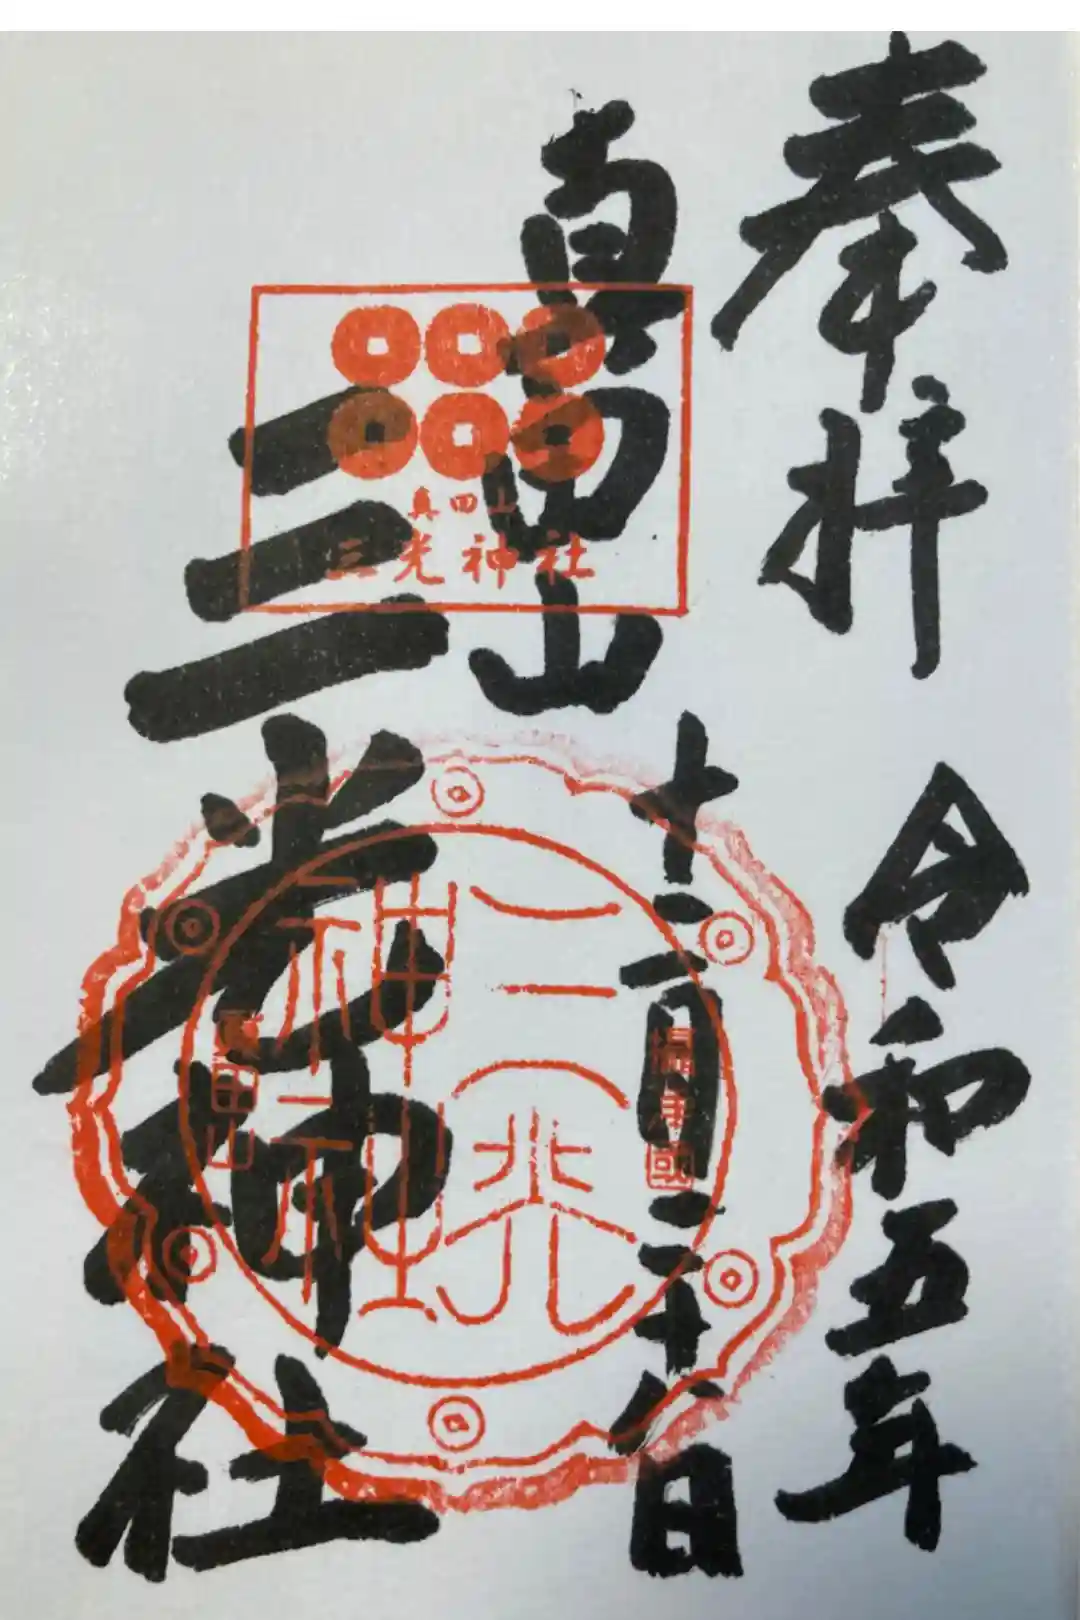 奉拝
令和五年
十二月二十八日
真田山
三光神社
真田山
三光神社
攝津國
三光
神社
眞田山